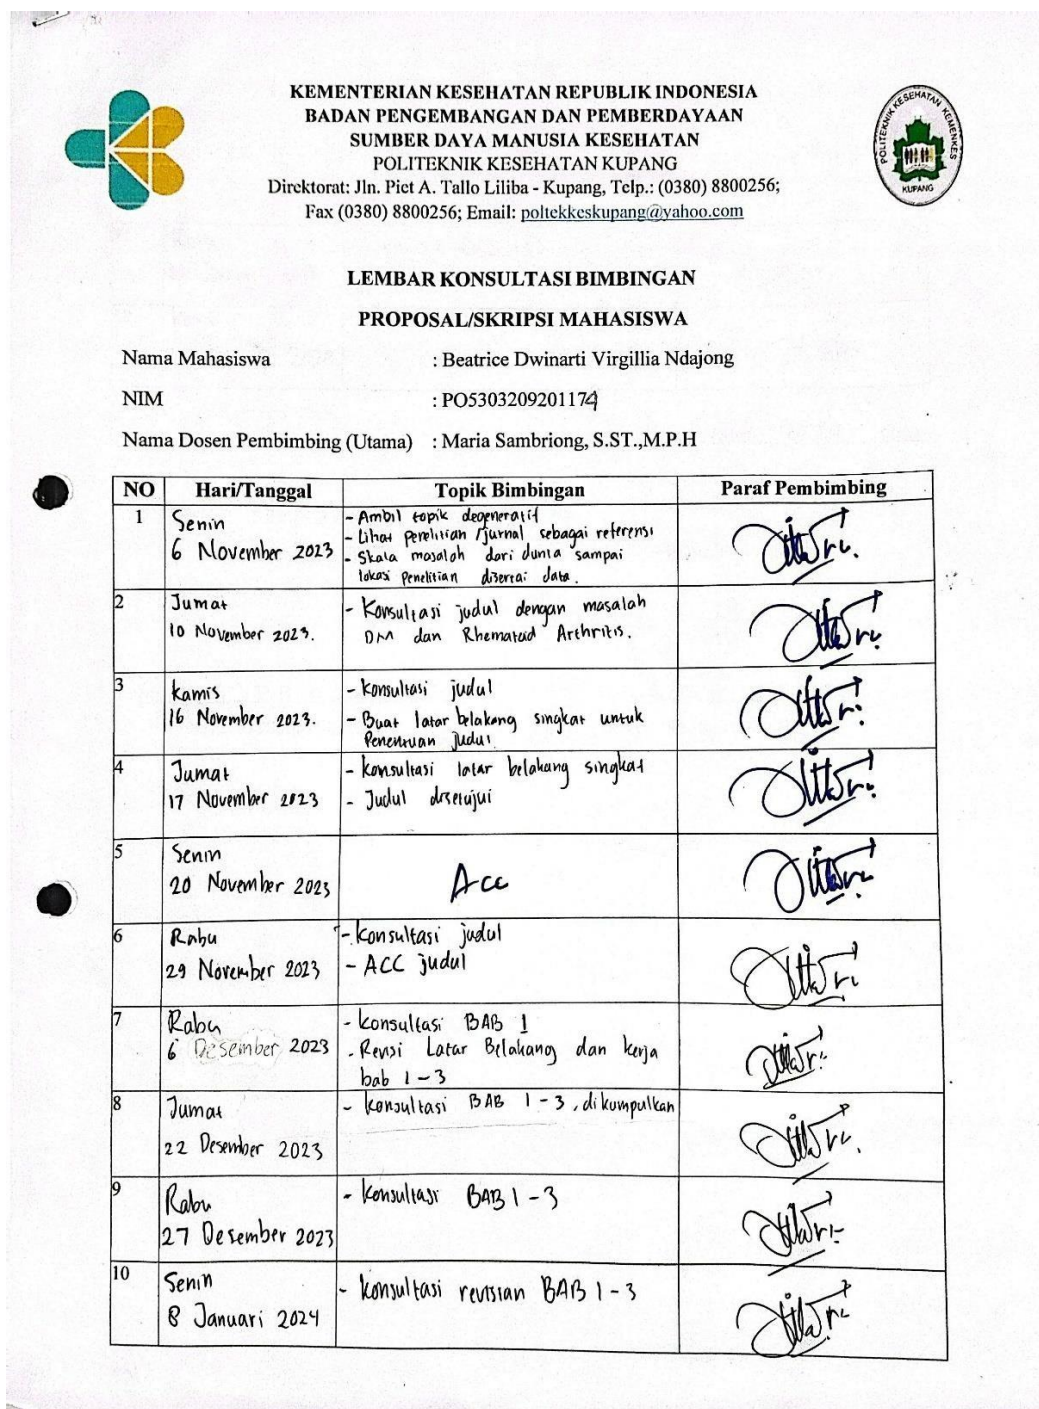 KEMENTERIAN KESEHATAN REPUBLIK INDONESIA
BADAN PENGEMBANGAN DAN PEMBERDAYAAN
SUMBER DAYA MANUSIA KESEHATAN
POLITEKNIK KESEHATAN KUPANG
Direktorat: Jln. Piet A. Tallo Liliba - Kupang, Telp.: (0380) 8800256;
Fax (0380) 8800256; Email: poltekkeskupang@yahoo.com
POLITEKNIK KESEHATAN KEMENKES
KUPANG
LEMBAR KONSULTASI BIMBINGAN
PROPOSAL/SKRIPSI MAHASISWA
Nama Mahasiswa : Beatrice Dwinarti Virgillia Ndajong
NIM : PO5303209201174
Nama Dosen Pembimbing (Utama) : Maria Sambriong, S.ST.,M.P.H
NO Hari/Tanggal Topik Bimbingan Paraf Pembimbing
1 Senin
6 November 2023
- Ambil topik degeneratif
- Lihat penelitian /jurnal sebagai referensi
- Skala masalah dari dunia sampai
lokasi penelitian disertai data.
2 Jumat
10 November 2023.
- Konsultasi judul dengan masalah
DM dan Rhematoid Arthritis.
3 Kamis
16 November 2023.
- Konsultasi judul
- Buat latar belakang singkat untuk
Penentuan judul
4 Jumat
17 November 2023
- konsultasi latar belakang singkat
- Judul disetujui
5 Senin
20 November 2023
Acc
6 Rabu
29 November 2023
- Konsultasi judul
- ACC judul
7 Rabu
6 Desember 2023
- konsultasi BAB 1
. Revisi Latar Belakang dan kerja
bab 1 - 3
8 Jumat
22 Desember 2023
- Konsultasi BAB 1 - 3, dikumpulkan
9 Rabu
27 Desember 2023
- Konsultasi BAB 1 - 3
10 Senin
8 Januari 2024
- Konsultasi revisian BAB 1 - 3